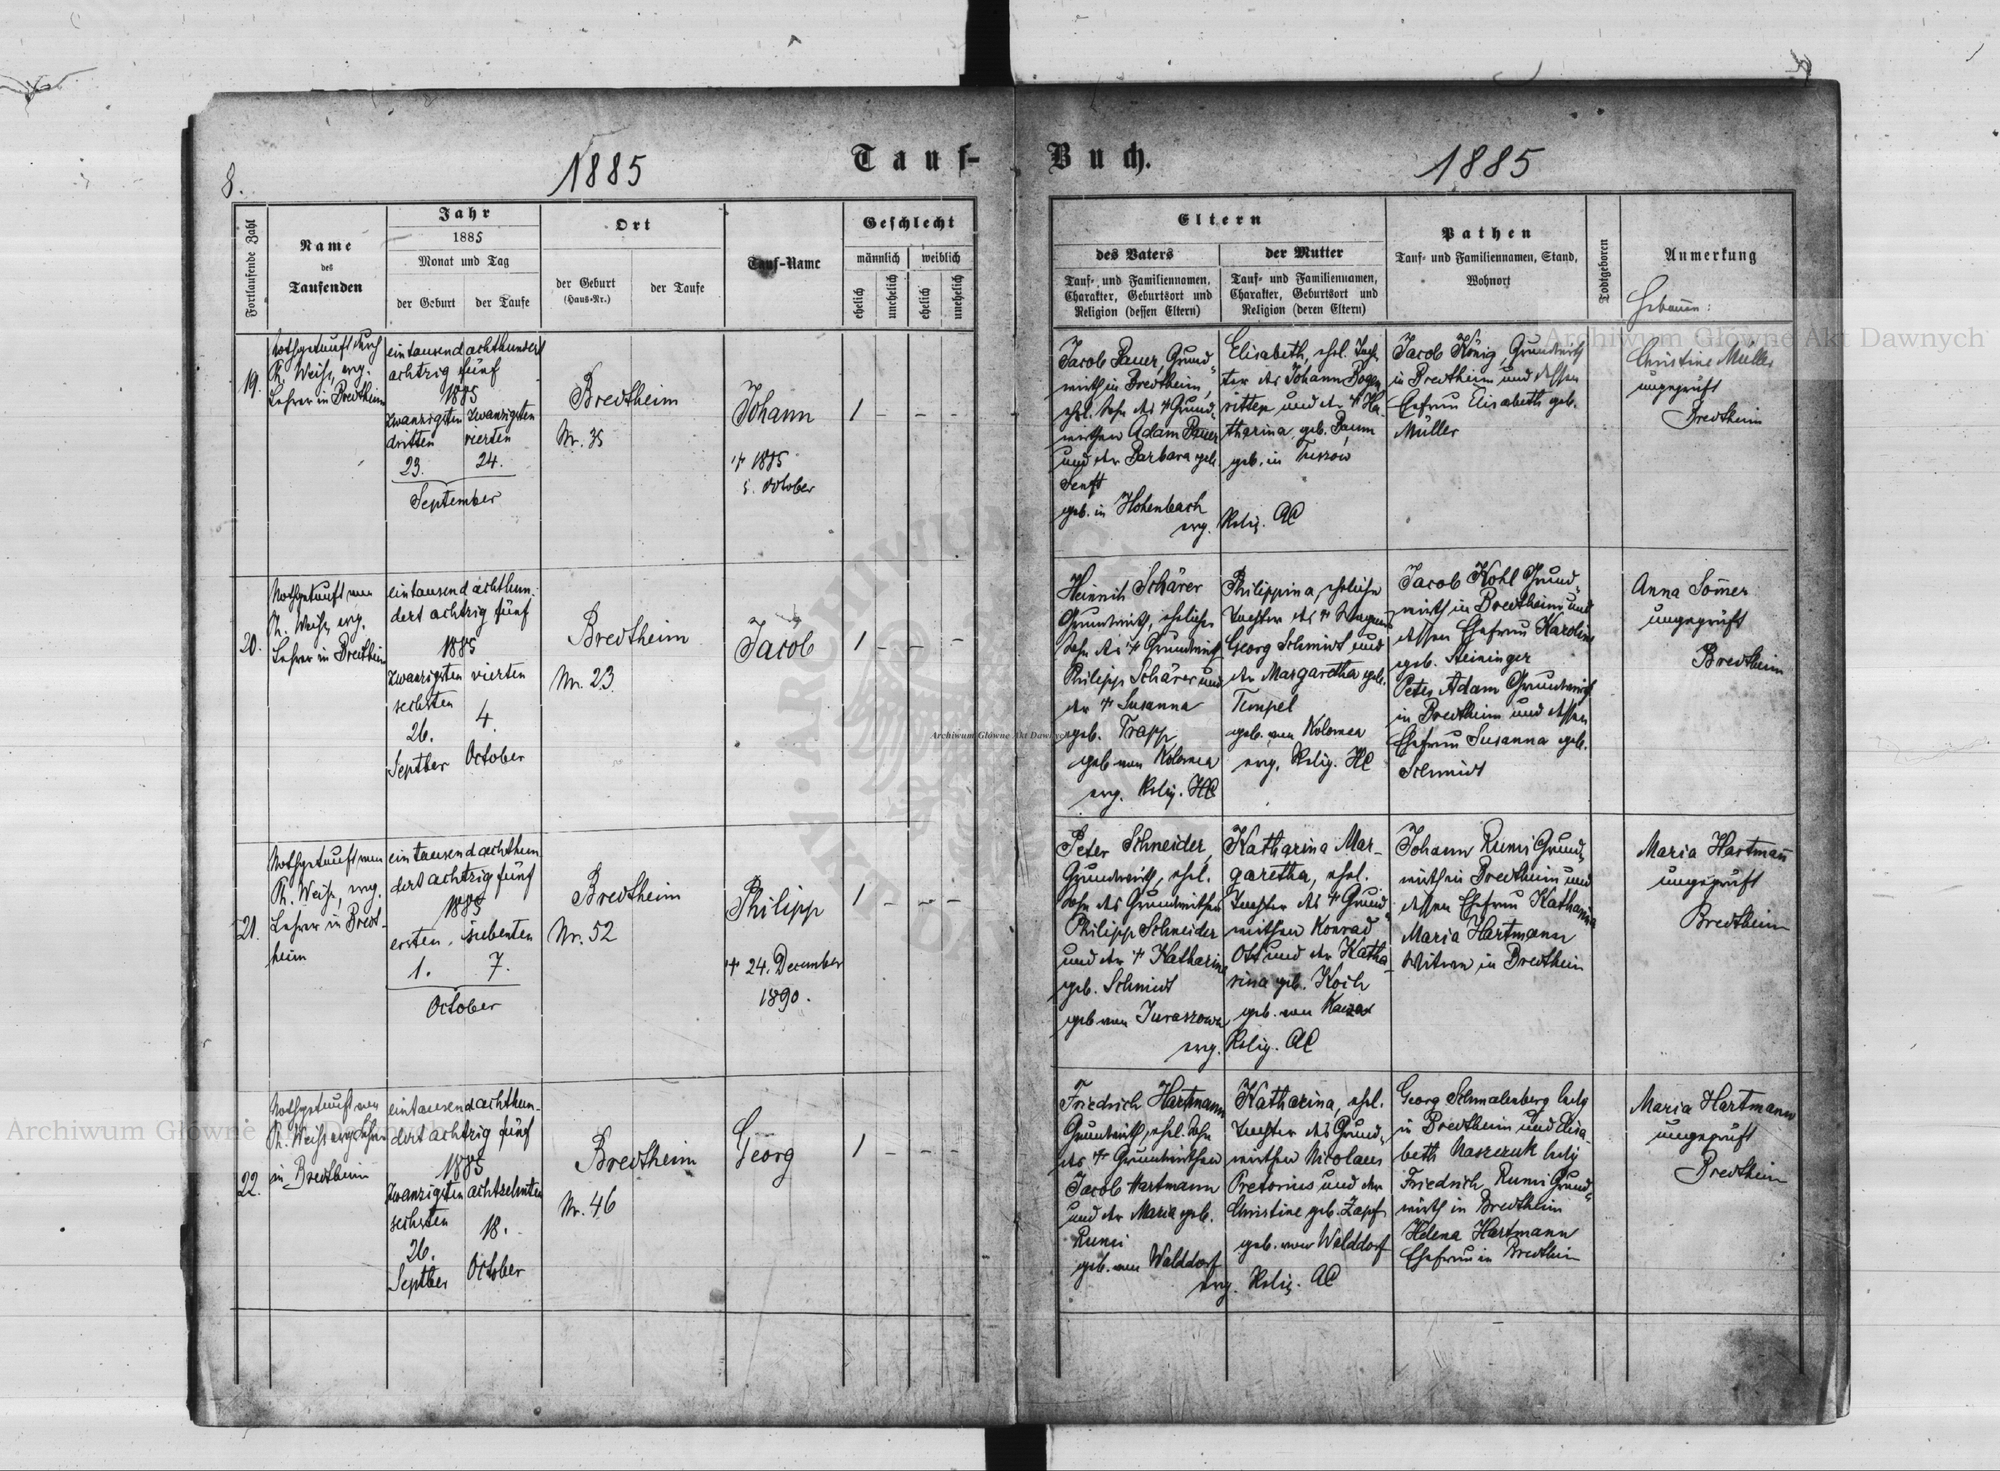 8.
1885
Tauf-
Buch.
1885
Fortlaufende Zahl
Name
des
Taufenden
Jahr
1885
Monat und Tag
der Geburt
der Taufe
Ort
der Geburt
(Haus-Nr.)
der Taufe
Tauf-Name
Geschlecht
männlich
weiblich
ehelich
unehelich
ehelich
unehelich
Eltern
des Vaters
Tauf- und Familiennamen,
Charakter, Geburtsort und
Religion (dessen Eltern)
der Mutter
Tauf- und Familiennamen,
Charakter, Geburtsort und
Religion (deren Eltern)
Pathen
Tauf- und Familiennamen, Stand,
Wohnort
Todtgeboren
Anmerkung
Hebamme:
19.
Nothgetauft durch
Ph. Weiss, evg.
Lehrer in Bredtheim
eintausend achthundert
achtzig fünf
1885
zwanzigsten zwanzigsten
dritten vierten
23. 24.
September
Bredtheim
Nr. 35
Johann
† 1885
5. October
1 - - -
Jacob Bauer, Grund-
wirth in Bredtheim,
ehl. Sohn des † Grund-
wirthen Adam Bauer
und der Barbara geb.
Senft
geb. in Hohenbach
evg.
Elisabeth, ehl. Toch-
ter des Johann Bogen-
ritter und der † Ka-
tharina geb. Baum
geb. in
Relig. AC
Jacob König, Grundwirth
in Bredtheim und dessen
Ehefrau Elisabeth geb.
Müller
Christine Müller
ungeprüft
Bredtheim
20.
Nothgetauft von
Ph. Weiss, evg.
Lehrer in Bredtheim
eintausend achthun-
dert achtzig fünf
1885
zwanzigsten vierten
sechsten
26. 4.
Septber October
Bredtheim
Nr. 23
Jacob
1 - - -
Heinrich Schärer
Grundwirth, ehelicher
Sohn des † Grundwirth
Philipp Schärer und
der † Susanna
geb. Trapp
geb. von Kolomea
evg. Relig. HC
Philippina, eheliche
Tochter des † Wagners
Georg Schmidt und
der Margaretha geb.
Tempel
geb. von Kolomea
evg. Relig. HC
Jacob Kohl Grund-
wirth in Bredtheim und
dessen Ehefrau Karoline
geb. Steininger
Peter Adam Grundwirth
in Bredtheim und dessen
Ehefrau Susanna geb.
Schmidt
Anna Som̅er
ungeprüft
Bredtheim
21.
Nothgetauft von
Ph. Weiss, evg.
Lehrer in Bredt-
heim
eintausend achthun-
dert achtzig fünf
1885
ersten, siebenten
1. 7.
October
Bredtheim
Nr. 52
Philipp
† 24. December
1890.
1 - - -
Peter Schneider,
Grundwirth, ehl.
Sohn des Grundwirthen
Philipp Schneider
und der † Katharina
geb. Schmidt
geb. von Juraszowa
evg.
Katharina Mar-
garetha, ehl.
Tochter des † Grund-
wirthen Konrad
Ott und der Katha-
rina geb. Koch
geb. von
Relig. AC
Johann Rumi Grund-
wirth in Bredtheim und
dessen Ehefrau Katharina
Maria Hartmann
Witwe in Bredtheim
Maria Hartman̅
ungeprüft
Bredtheim
22.
Nothgetauft von
Ph. Weiss evg Lehrer
in Bredtheim
eintausend achthun-
dert achtzig fünf
1885
zwanzigsten achtzehnten
sechsten
26. 18.
Septber October
Bredtheim
Nr. 46
Georg
1 - - -
Friedrich Hartmann
Grundwirth, ehl. Sohn
des † Grundwirthen
Jacob Hartmann
und der Maria geb.
Rumi
geb. von Walddorf
evg.
Katharina, ehl.
Tochter des Grund-
wirthen Nicolaus
Pretorius und der
Christine geb. Zapf
geb. von Walddorf
Relig. AC
Georg Schmalenberg ledig
in Bredtheim und Elisa-
beth Naszczuk ledig
Friedrich Rumi Grund-
wirth in Bredtheim
Helena Hartmann
Ehefrau in Bredtheim
Maria Hartmann
ungeprüft
Bredtheim
Archiwum Główne Akt Dawnych
Archiwum Główne Akt Dawnych
Archiwum Główne Akt Dawnych